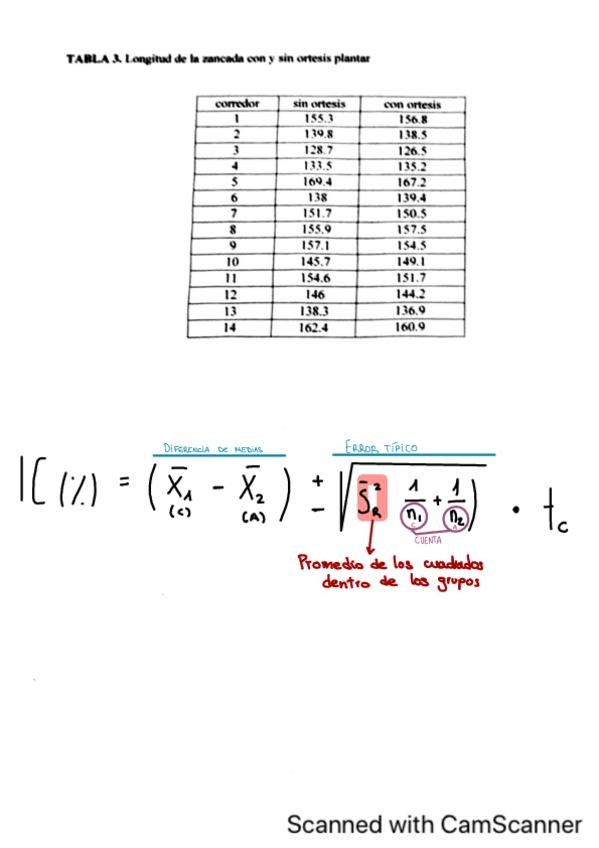 TABLA 3. Longitud de la zancada con y sin ortesis plantar
corredor sin ortesis con ortesis
1 155.3 156.8
2 139.8 138.5
3 128.7 126.5
4 133.5 135.2
5 169.4 167.2
6 138 139.4
7 151.7 150.5
8 155.9 157.5
9 157.1 154.5
10 145.7 149.1
11 154.6 151.7
12 146 144.2
13 138.3 136.9
14 162.4 160.9
DIFERENCIA DE MEDIAS ERROR TÍPICO
IC (%) = (X̄₁ - X̄₂) ± √S̄²R 1/n₁ + 1/n₂) · tc
(C) (A)
CUENTA
Promedio de los cuadrados
dentro de los grupos
Scanned with CamScanner